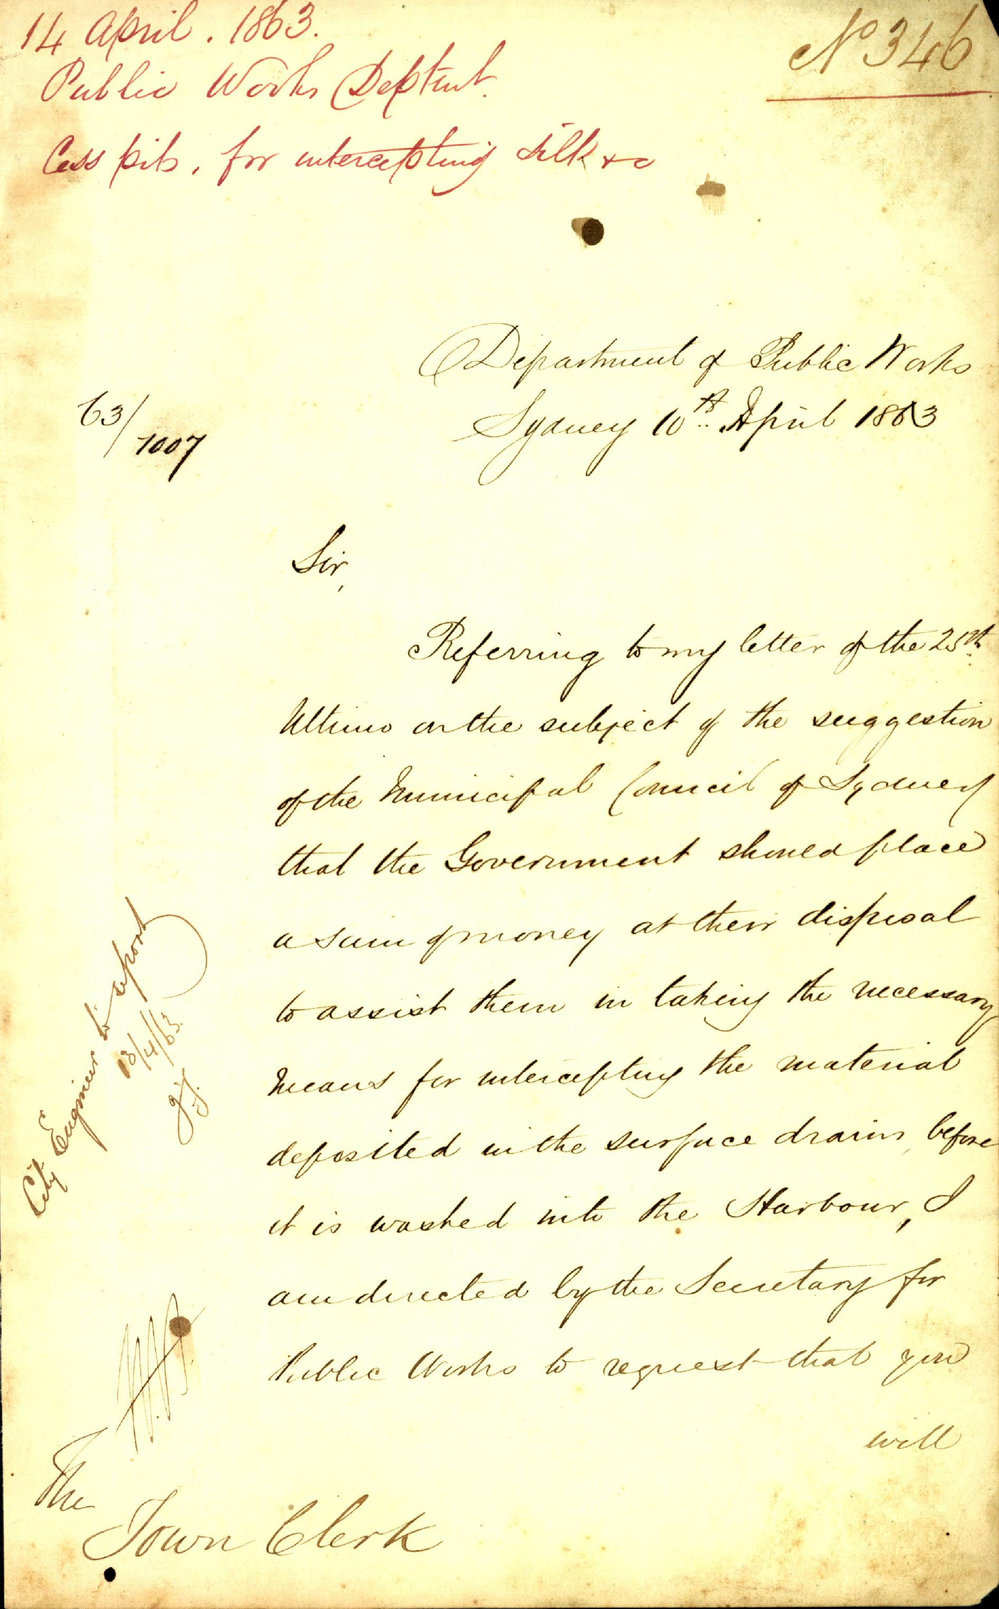 14 April . 1863.
Public Works Deptmt.
Nº 346
Cess pits, for intercepting silk &c
Department of Public Works
Sydney 10th April 1863
63/1007
Sir,
Referring to my letter of the 25th
Ultimo on the subject of the suggestion
of the Municipal Council of Sydney
that the Government should place
a sum of money at their disposal
to assist them in taking the necessary
means for intercepting the material
deposited in the surface drains, before
it is washed into the Harbour, I
am directed by the Secretary for
Public Works to request that you
will
City Engineer to report
13/4/63.
The
Town Clerk